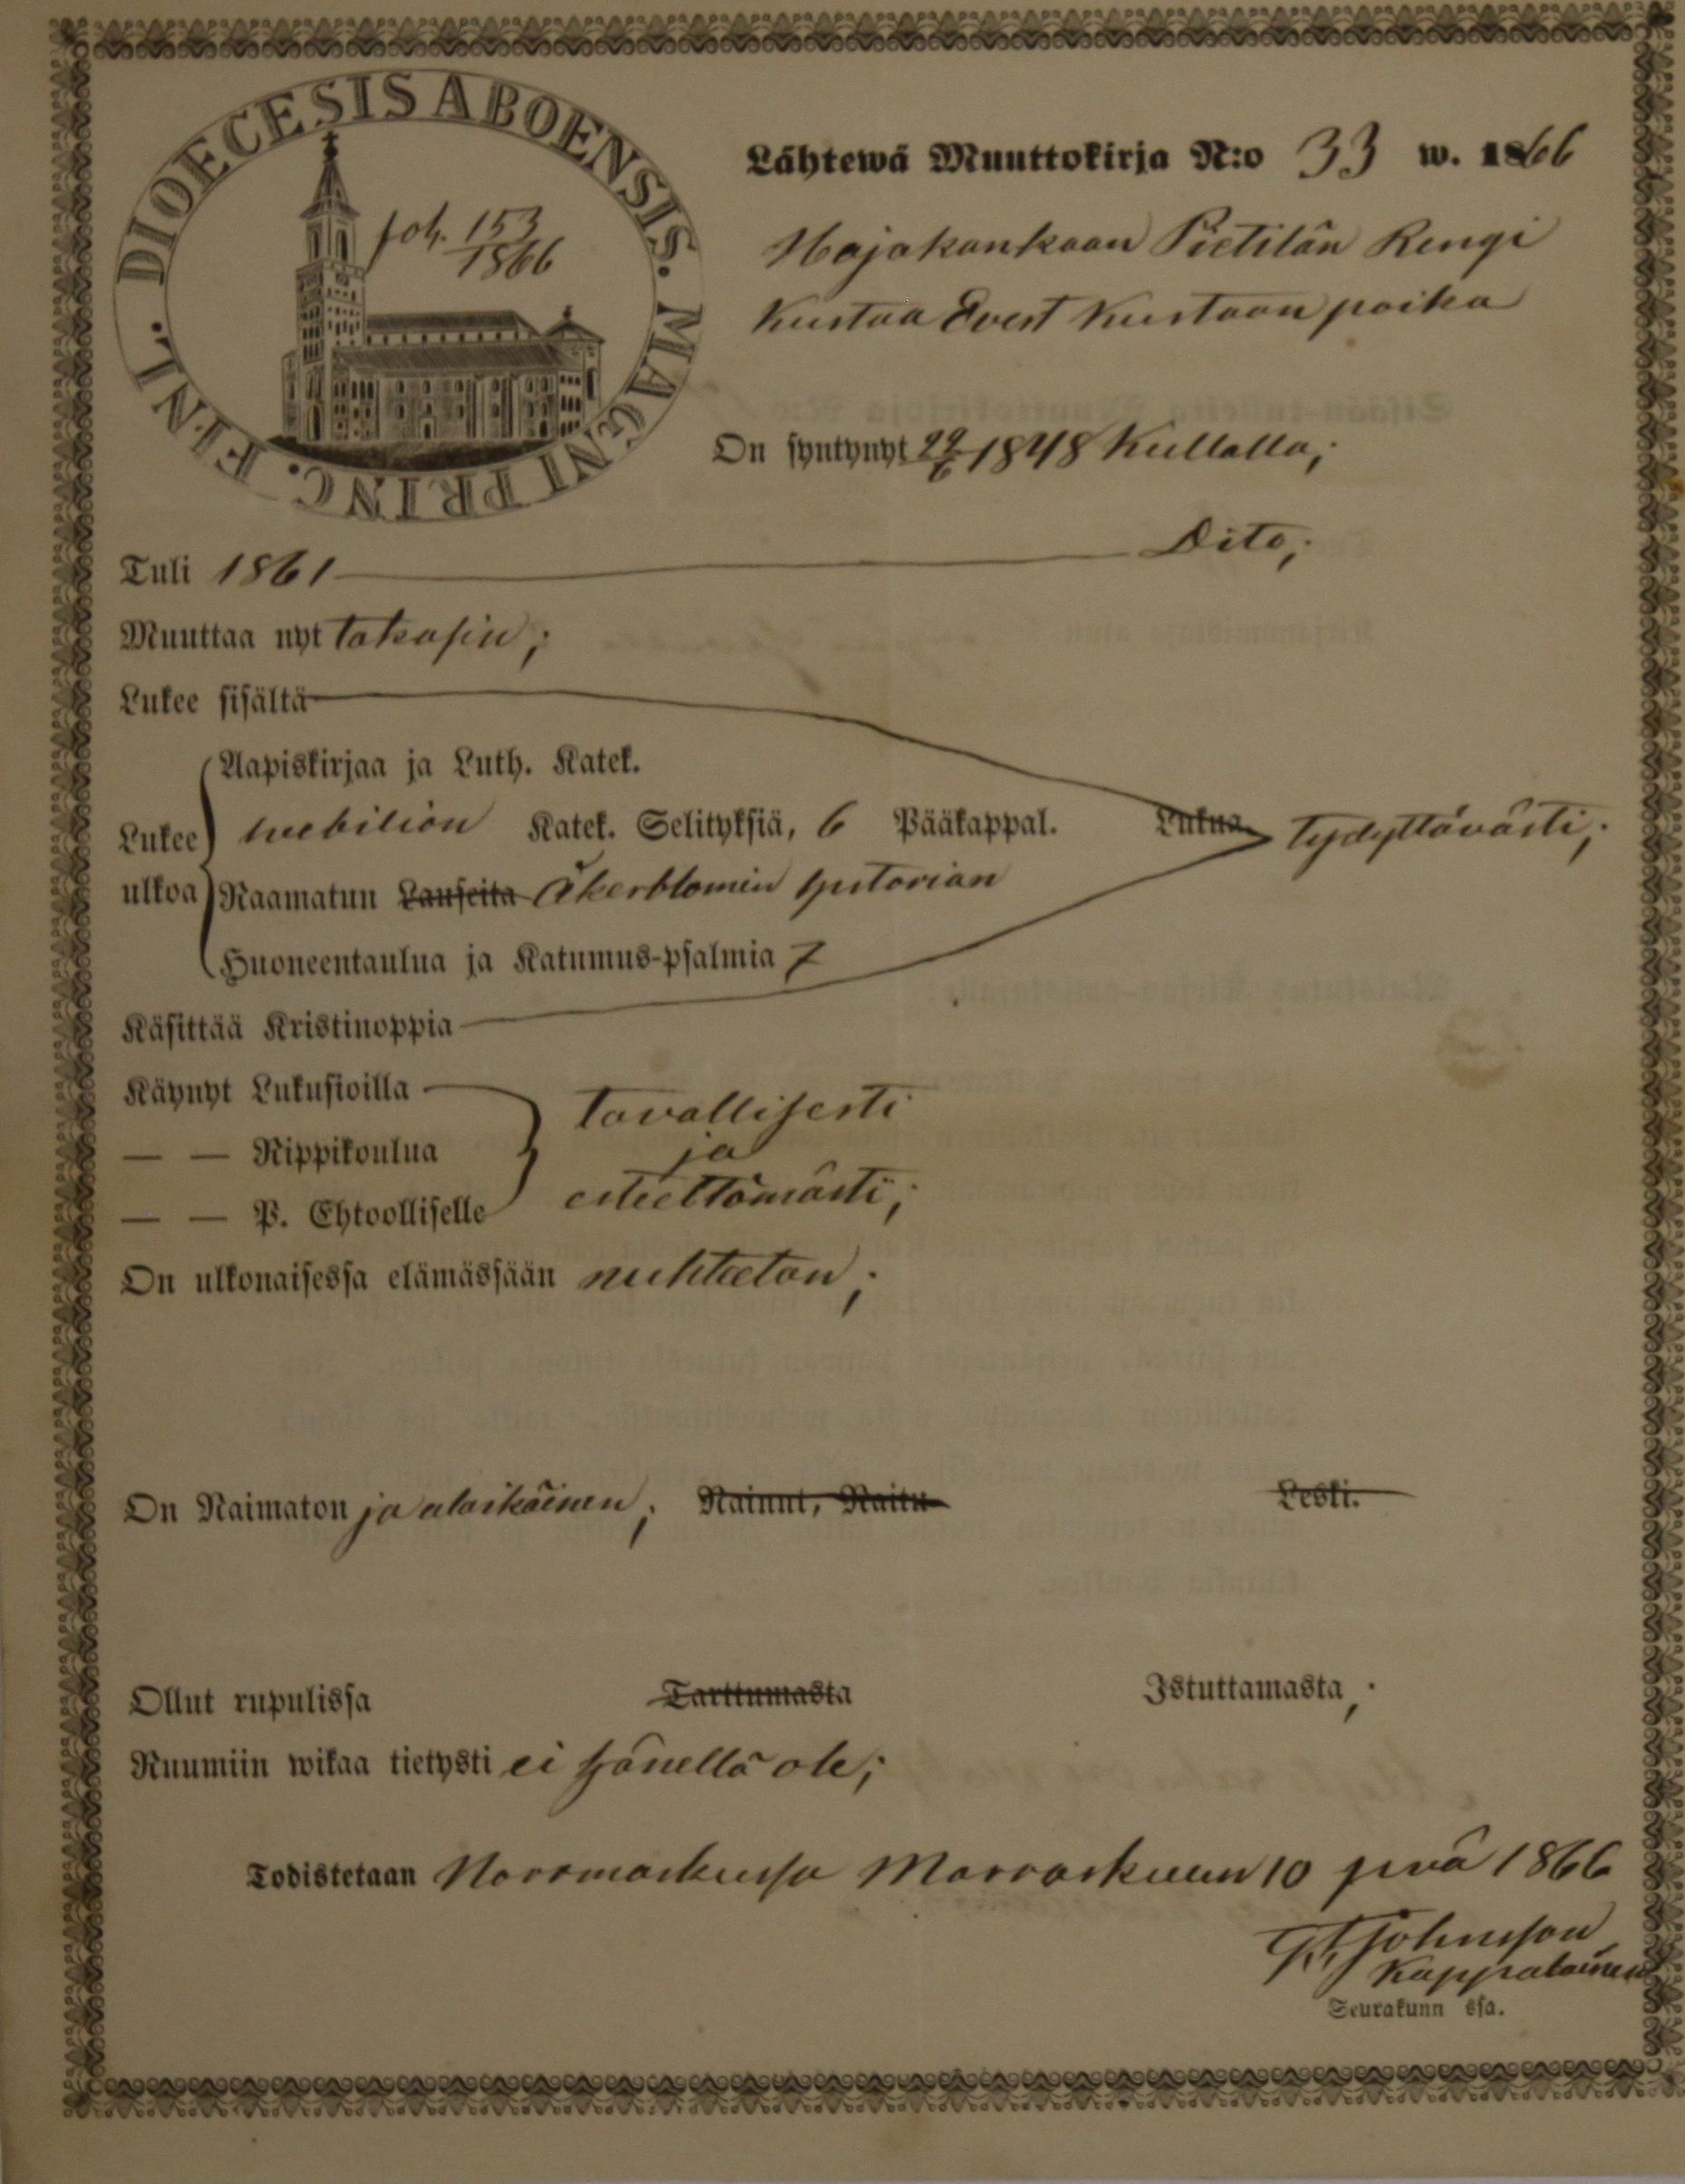 DIOECESIS ABOENSIS. MAGNI PRINC. FINL.
foh. 153
1866
Lähtewä Muuttokirja N:o 33 w. 1866
Hajakankaan Pietilän Rengi
Kustaa Evert Kustaan poika
On syntynyt 29/6 1848 Kullalla;
Tuli 1861 Dito;
Muuttaa nyt takasin;
Lukee sisältä
Aapiskirjaa ja Luth. Katek.
Lukee Katek. Selityksiä, 6 Pääkappal. Lukua. tydyttävästi;
ulkoa Raamatun Lauseita Åkerblomin historian
Huoneentaulua ja Katumus-psalmia 7
Käsittää Kristinoppia
Käynyt Lukusioilla tavallisesti
— — Rippikoulua ja
— — P. Ehtoolliselle esteettömästi;
On ulkonaisessa elämässään nuhteeton;
On Naimaton ja alaikäinen; Nainut, Naitu Leski.
Ollut rupulissa Tarttumasta Istuttamasta;
Ruumiin wikaa tietysti ei hänellä ole;
Todistetaan Norrmarkussa Marraskuun 10 pivä 1866
Johnsson
Kappalainen
Seurakunn ssa.